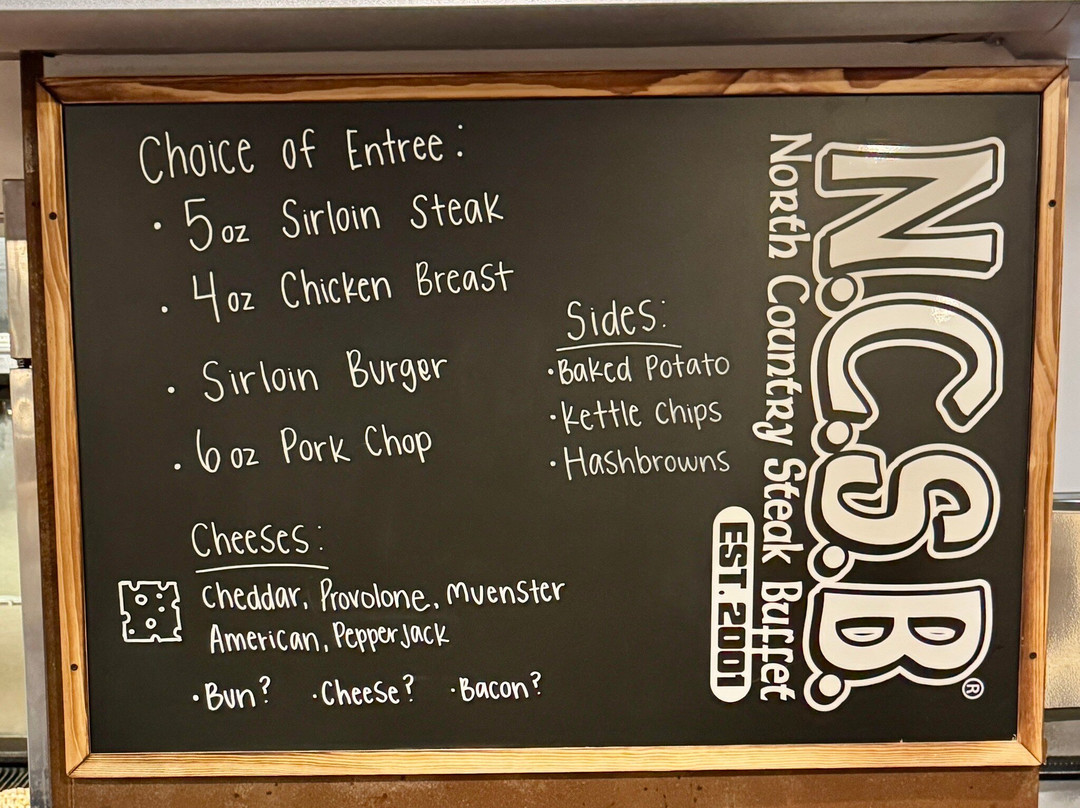 Choice of Entree:
· 5oz Sirloin Steak
· 4oz Chicken Breast
· Sirloin Burger
· 6oz Pork Chop
Sides:
·Baked Potato
·Kettle Chips
·Hashbrowns
Cheeses:
Cheddar, Provolone, Muenster
American, Pepper Jack
·Bun? ·Cheese? ·Bacon?
N.C.S.B.®
North Country Steak Buffet
EST. 2001